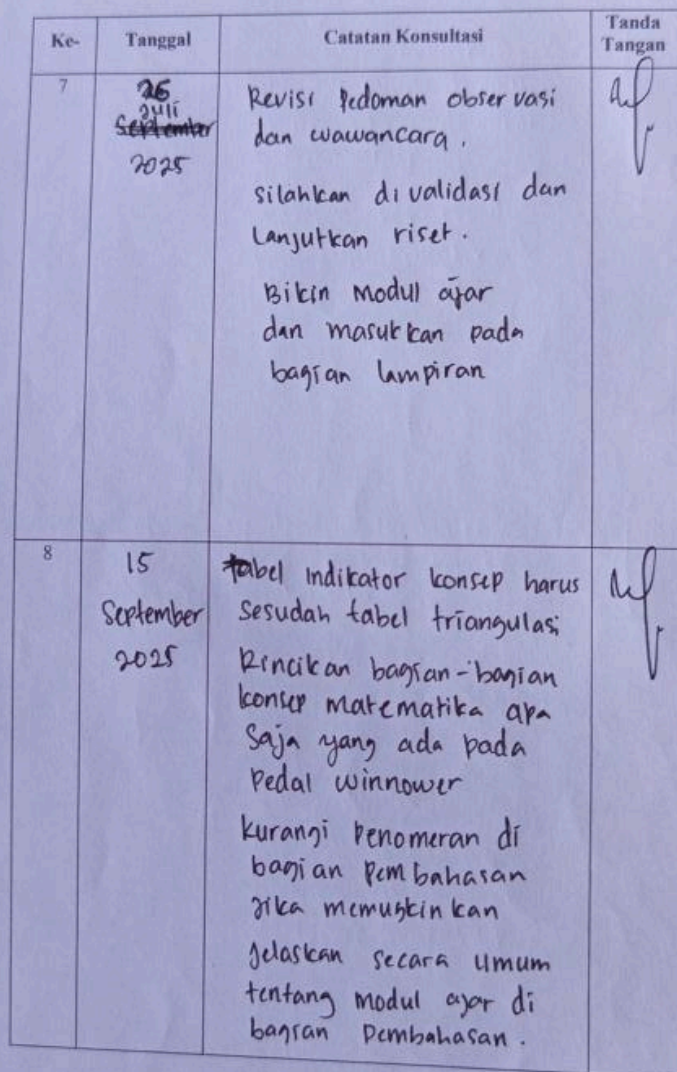 Ke-
Tanggal
Catatan Konsultasi
Tanda
Tangan
7
26
Juli
September
2025
Revisi Pedoman observasi
dan wawancara.
silahkan di validasi dan
Lanjutkan riset.
Bikin Modul ajar
dan masukkan pada
bagian lampiran
8
15
September
2025
tabel indikator konsep harus
sesudah tabel triangulasi
Rincikan bagian-bagian
konsep matematika apa
saja yang ada pada
Pedal winnower
kurangi Penomeran di
bagian Pembahasan
Jika memungkinkan
Jelaskan secara umum
tentang modul ajar di
bagian Pembahasan.